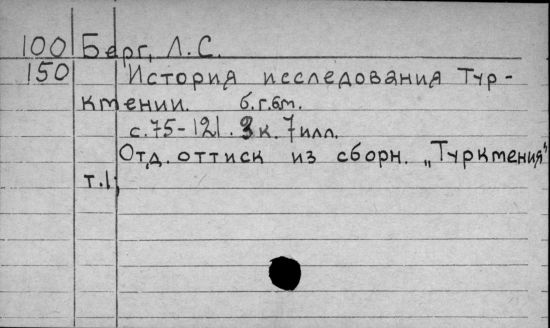 100 Берг, Л.С.
150 История исследования Тур-
кмении. б.г.бм.
с.75-121. 3к. 7илл.
Отд. оттиск из сборн. „Туркмения"
т.1,